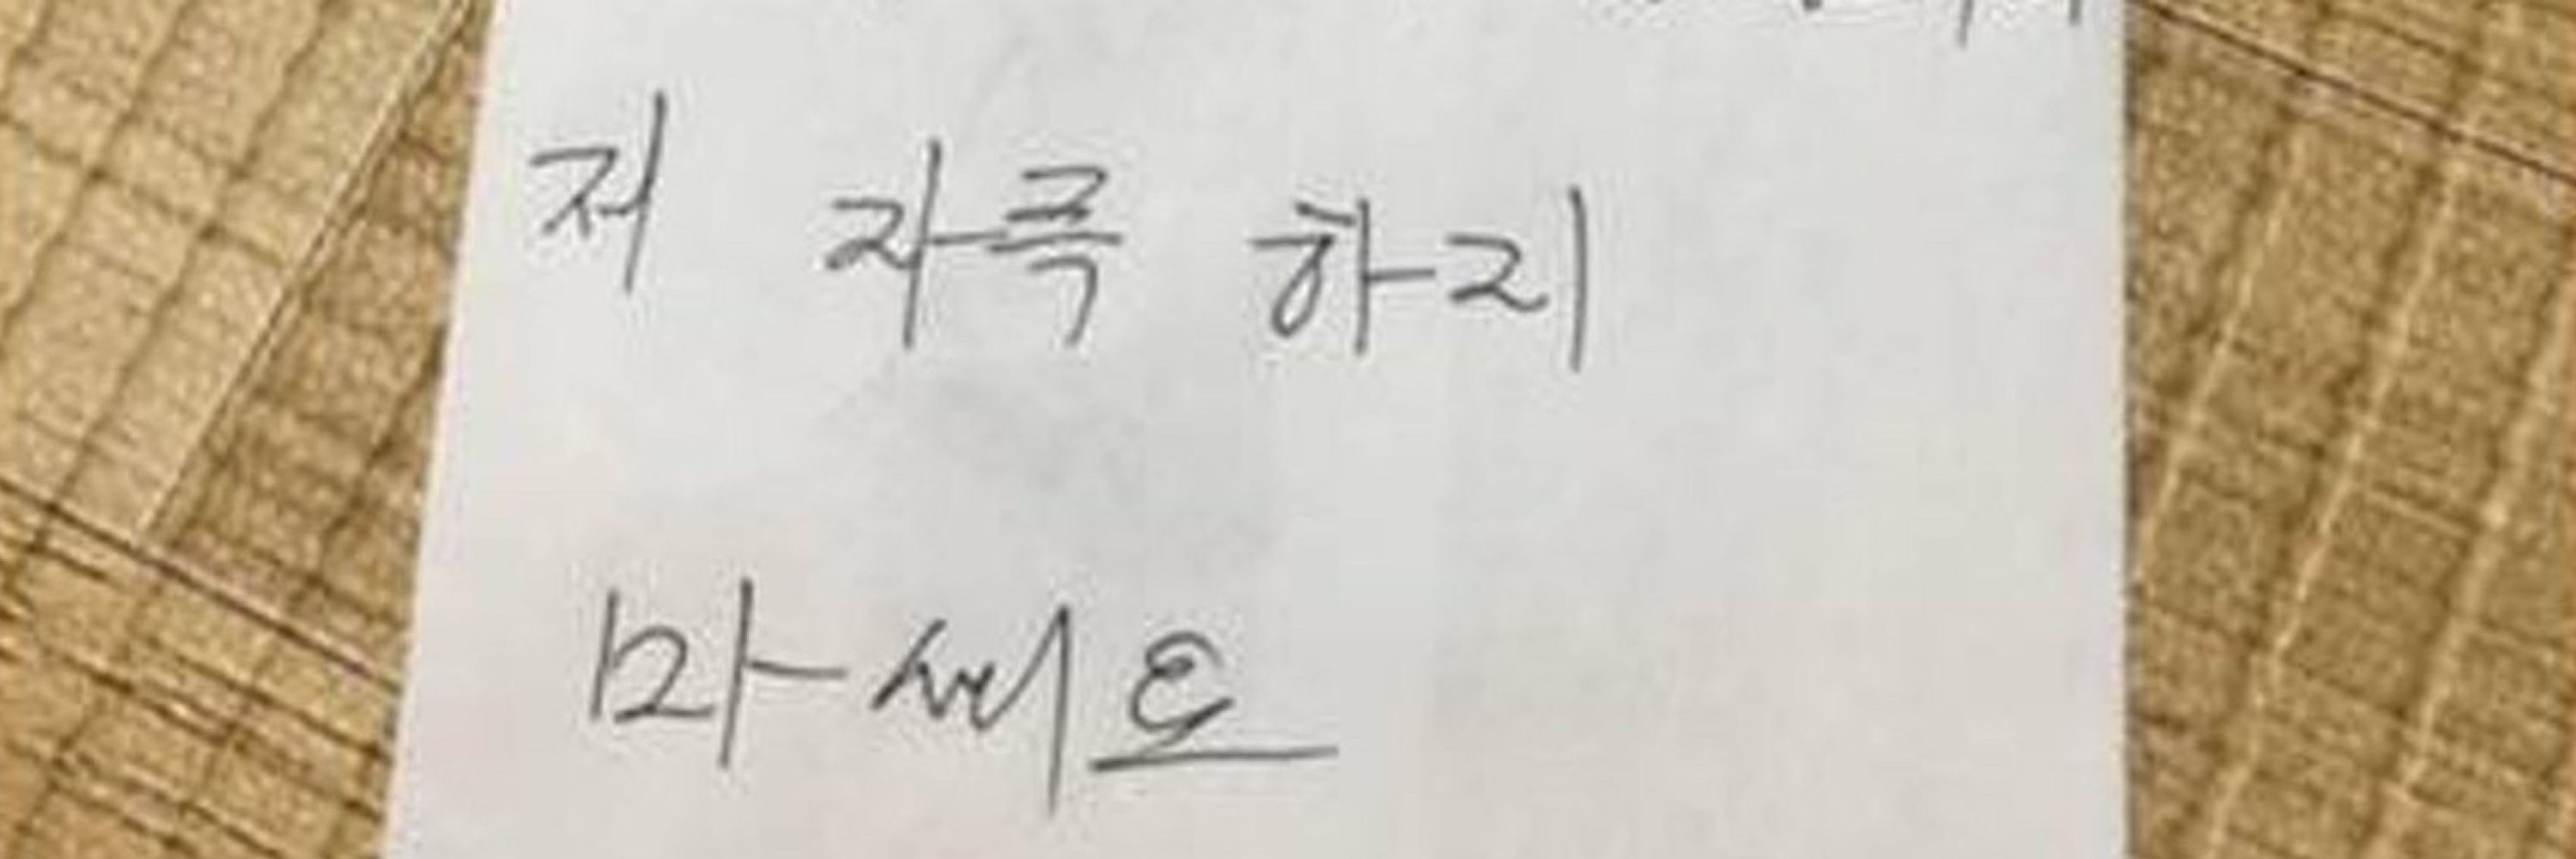 저 자극 하지
마세요